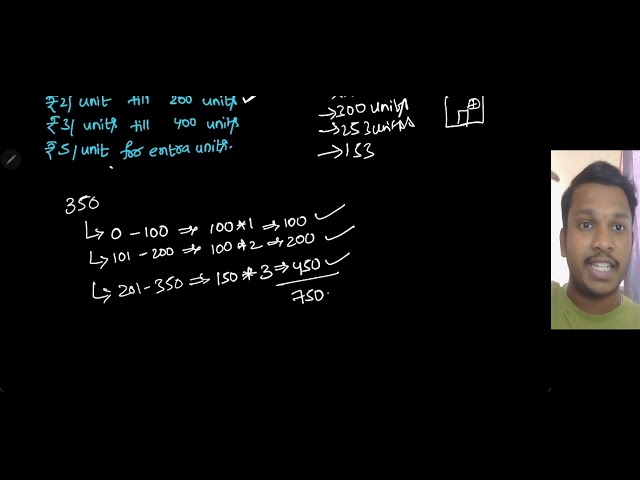 ₹2/ unit till 200 units ✓
₹3/ units till 400 units
₹5/unit for entra units.
→300 units
→253 units
→153
350
↳ 0 - 100 ⇒ 100*1 ⇒ 100 ✓
↳ 101 - 200 ⇒ 100*2 ⇒ 200 ✓
↳ 201 - 350 ⇒ 150*3 ⇒ 450 ✓
750.